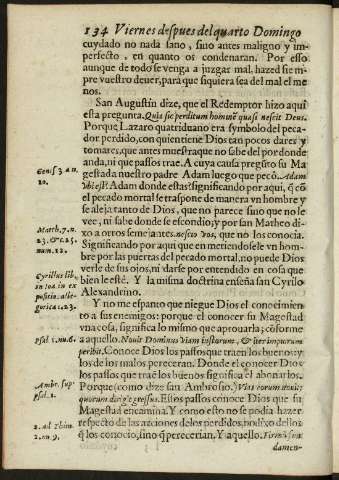 134 Viernes despues del quarto Domingo
cuydado no nada sano, sino antes maligno y im-
perfecto, en quanto os condenaran. Por esso
aunque de todo se venga a juzgar mal, hazed siem-
pre vuestro deuer, para que siquiera sea del mal el me
nos.
San Augustin dize, que el Redemptor hizo aqui
esta pregunta. Quia sic perditum hominẽ quasi nescit Deus.
Porque Lazaro quatriduano era symbolo del peca-
dor perdido, con quien tiene Dios tan pocos dares y
tomares, que antes muestra que no sabe del por donde
anda, ni que passos trae. A cuya causa pregũto su Ma
gestad a nuestro padre Adam luego que pecò. Adam
vbi es? Adam donde estas? significando por aqui, q̃ cõ
el pecado mortal se traspone de manera vn hombre y
se aleja tanto de Dios, que no parece sino que no le
vee, ni sabe donde se escondio; y por san Matheo di-
xo a otros semejantes. nescio vos, que no los conocia.
Significando por aqui que en metiendose le vn hom-
bre por las puertas del pecado mortal, no puede Dios
verle de sus ojos, ni darse por entendido en cosa que
bien le esté. Y la misma doctrina enseña san Cyrilo
Alexandrino.
Y no me espanto que niegue Dios el conocimien
to a sus enemigos: porque el conocer su Magestad
vna cosa, significa lo mismo que aprouarla; cõforme
a aquello. Nouit Dominus viam iustorum, & iter impiorum
peribit. Conoce Dios los passos que traen los buenos: y
los de los malos pereceran. Donde el conocer Dios
los passos que traẽ los buenos significa el abonarlos.
Porque (como dize san Ambrosio.) Vias eorum nouit:
quorum dirigit gressus. Estos passos conoce Dios que su
Magestad encamina. Y como esto no se podia hazer
respecto de las acciones de los perdidos, no dixo de los
q̃ los conocio, sino q̃ perecerian. Y aquello.
damen-
Genes 3. a n.
10.
Math. 7. n.
23. & c. 25.
num. 12.
Cyrillus lib.
psal. 1. nu. 6.
Ambr. sup
psal. 1.
2. ad Thim.
2. nu. 9.